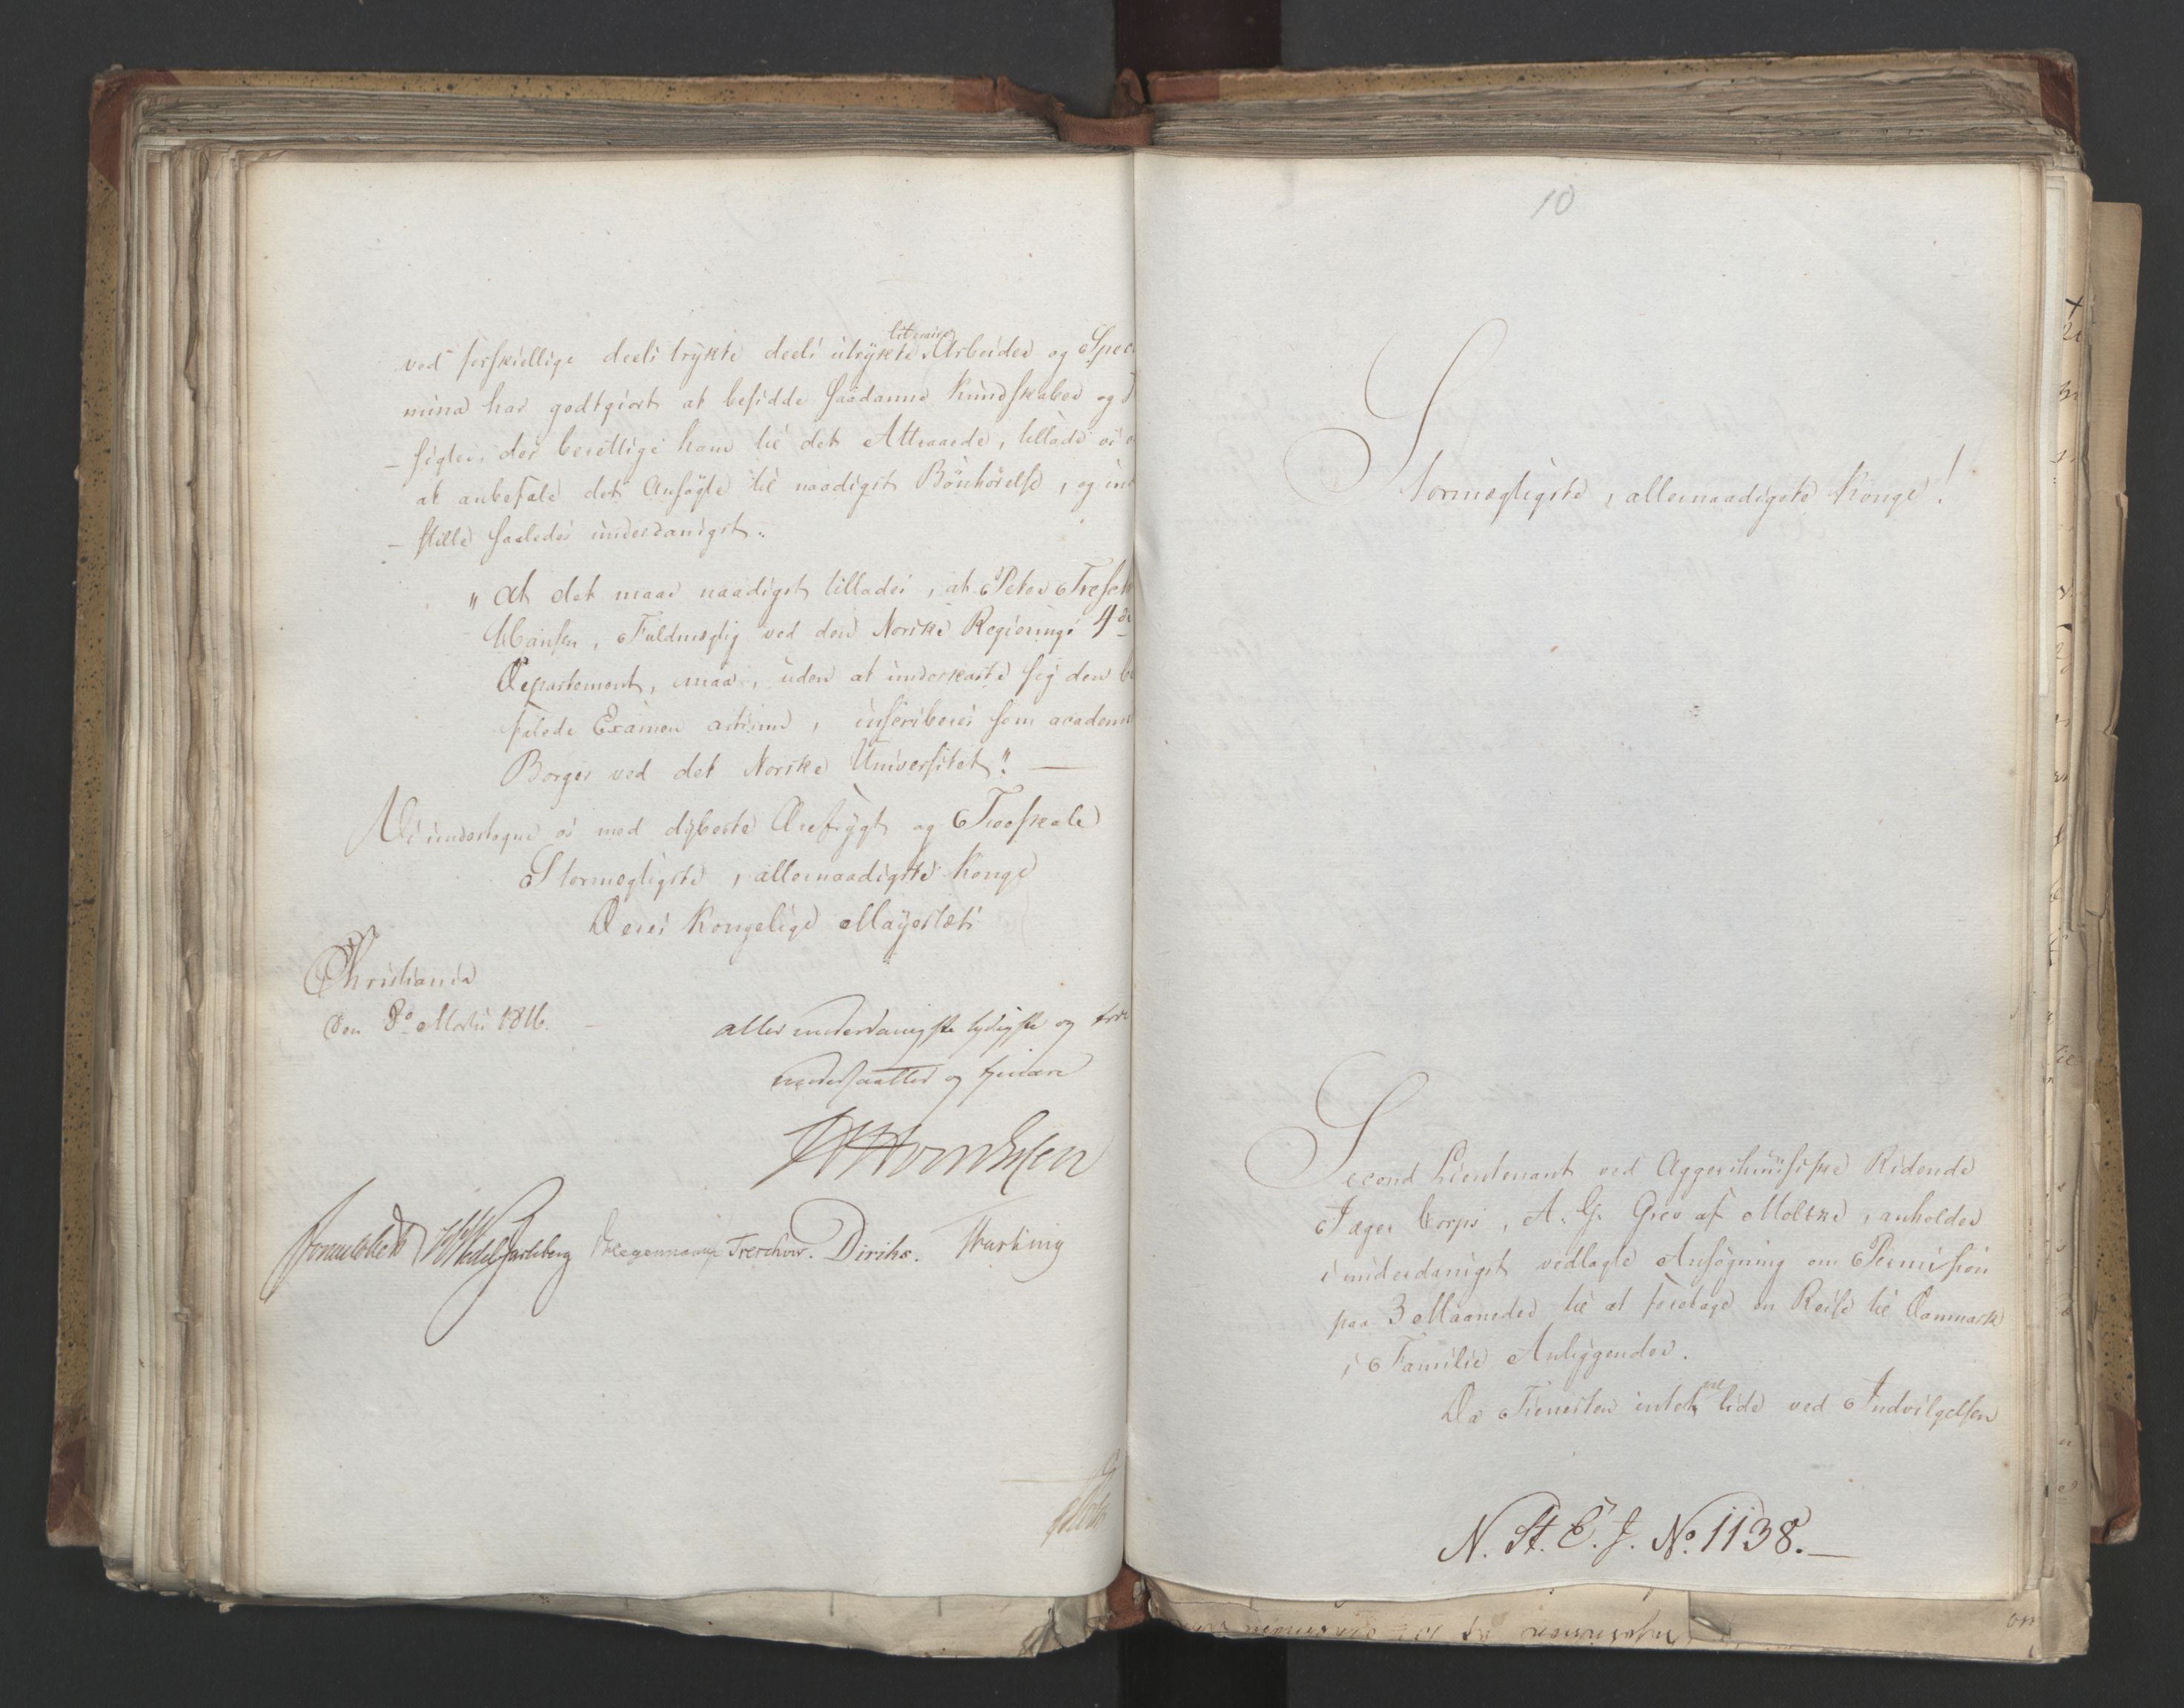 ved forskiellige deels trykte deels utrykte literaire Arbeider og Speci
mina har godtgiort at besidde saadanne Kundskaber og
-sigter, der berettige ham til det Attraaede, tillade vi os
at anbefale det Ansøgte til naadigst Bönhörelse, og ind
-stille saaledes underdanigst:
"at det maae naadigst tillades, at Peter Tresch
Hansen, Fuldmægtig ved den Norske Regierings 4de
Departement, maae, uden at underkaste sig den be
falede Examen artium, inscriberes som academi
Borger ved det Norske Universitet". —
Vi undertegne os med dybeste Ærefrygt og Troeskab
Stormægtigste, allernaadigste Konge
Deres Kongelige Mayestæts
Christiania
den 8de Martii 1816. —
allerunderdanigste lydigste og troe
undersaatter og tjenere
Sommelskelt HWedel Jarlsberg Treschow. Diriks.
10
Stormægtigste, allernaadigste Konge!
Second Lieutenant ved Aggershuusiske Ridende
Jæger Corps, A. G. Grev af Moltke, anholder
i underdanigst vedlagte Ansøgning om Permission
paa 3 Maaneder til at foretage en Reise til Danmark
i Familie Anliggender.
Da Tienesten intet vil lide ved Indvilgelsen
N. St. C. J. No. 1138. —